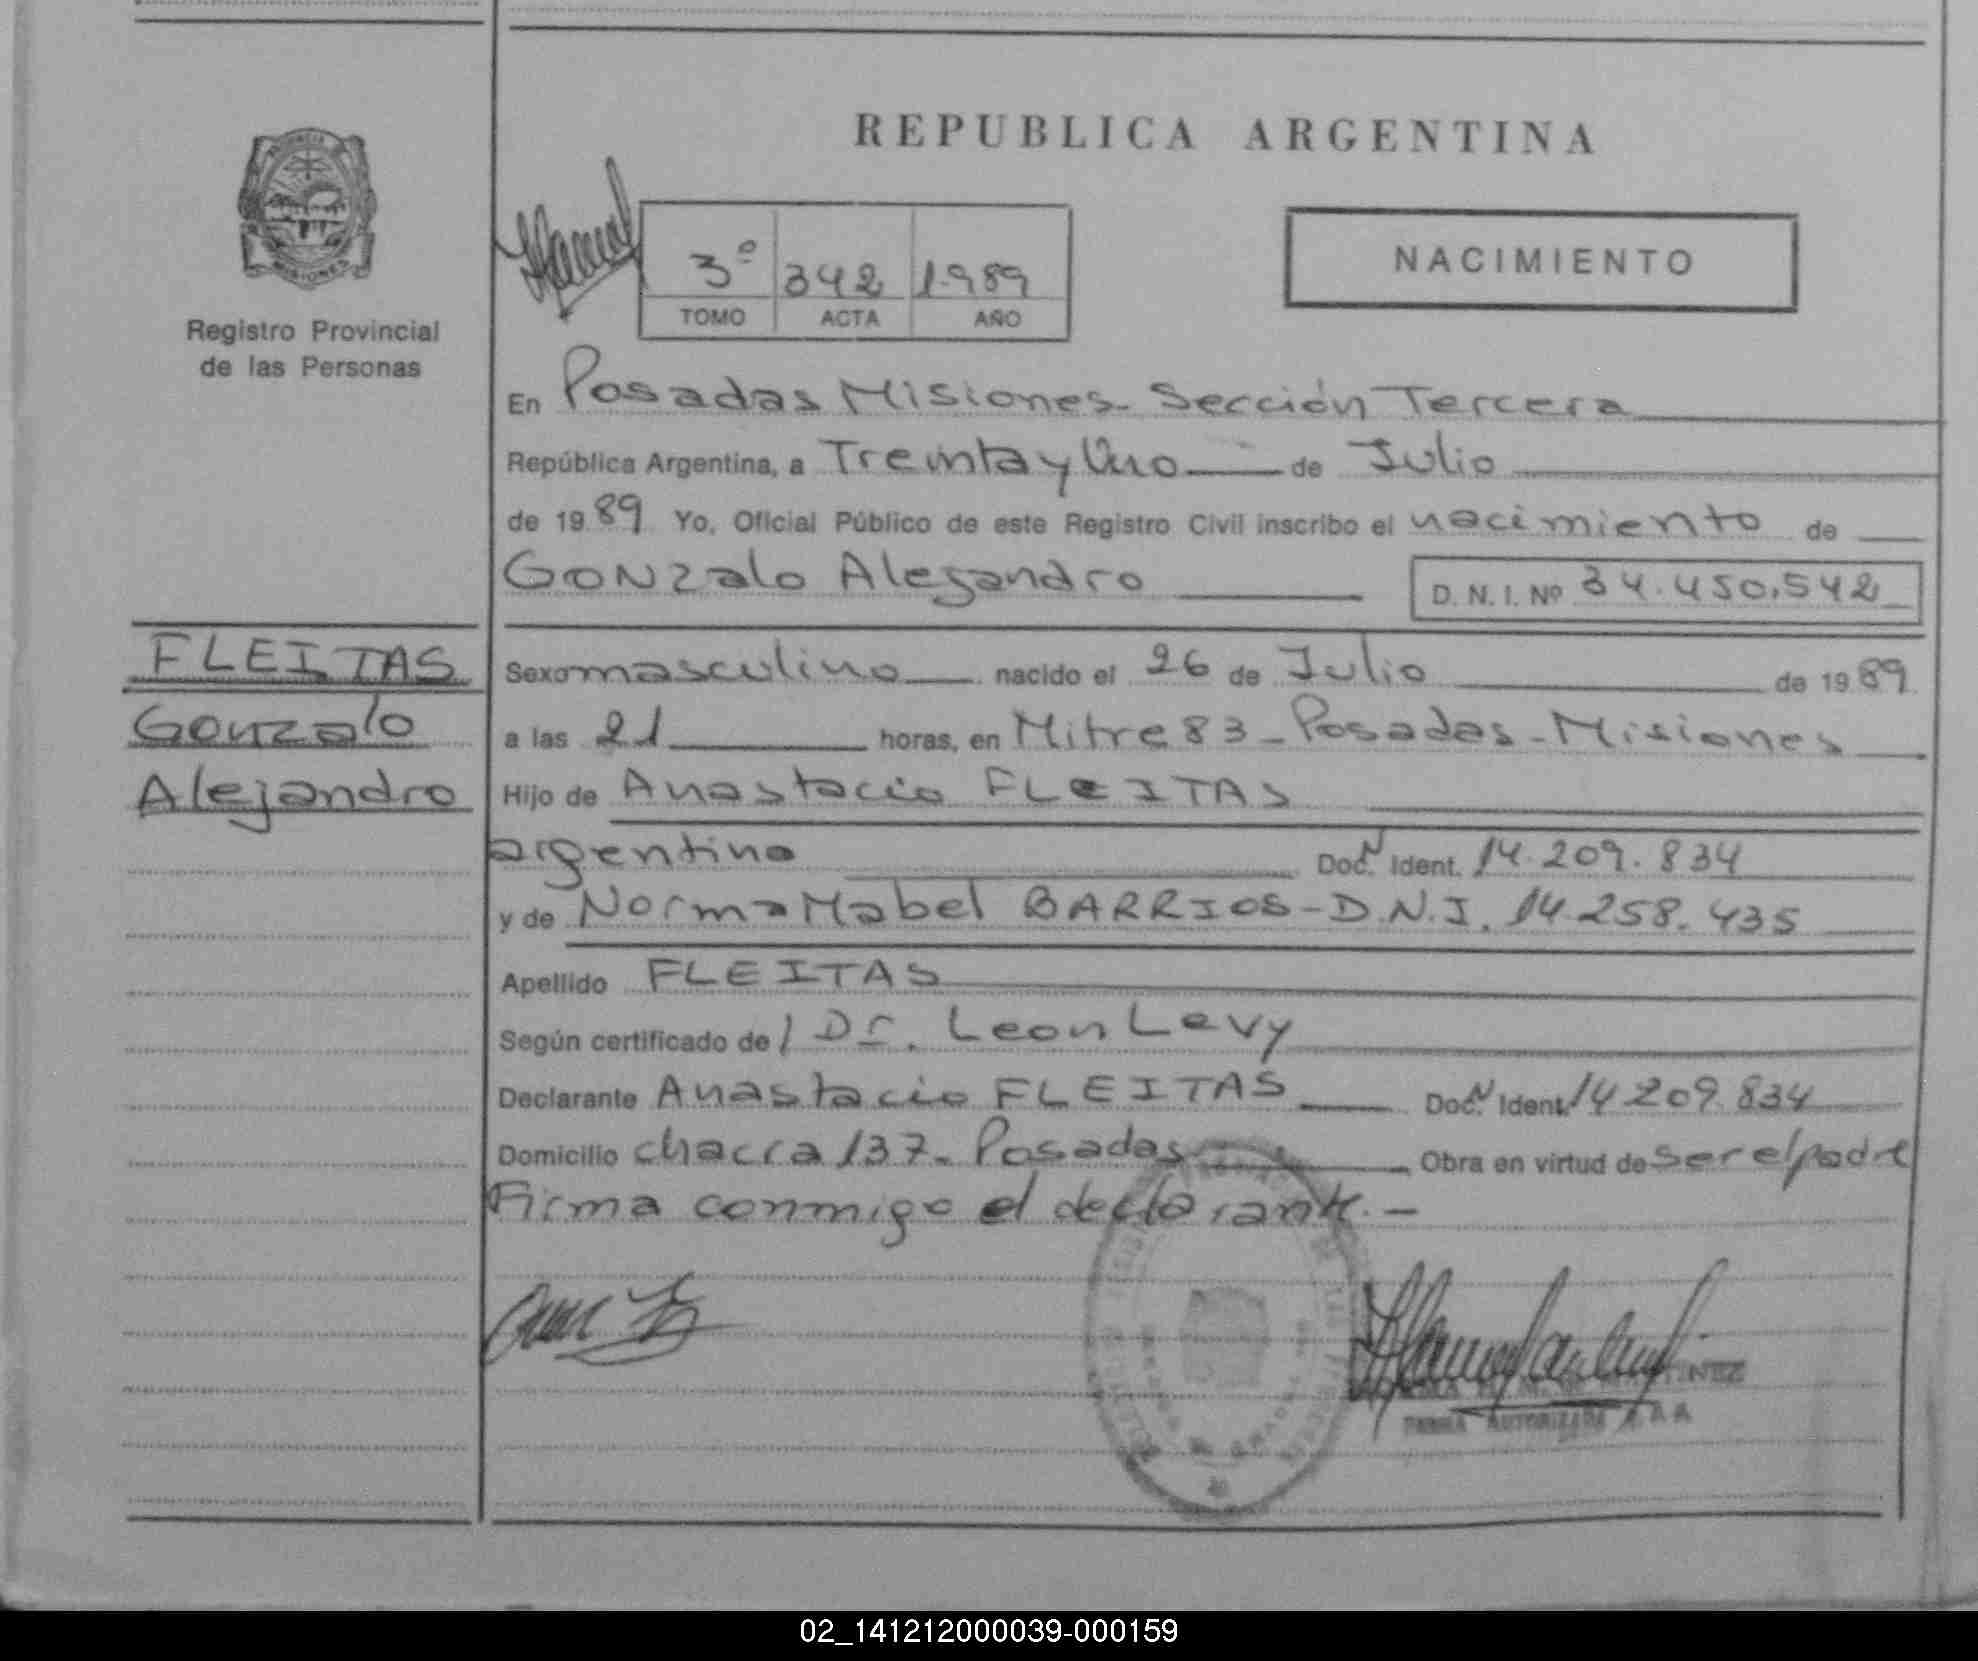 REPUBLICA ARGENTINA
3º 342 1989
TOMO ACTA AÑO
NACIMIENTO
PROVINCIA
MISIONES
Registro Provincial
de las Personas
En Posadas Misiones - Sección Tercera
República Argentina, a Treinta y Uno de Julio
de 1989 Yo, Oficial Público de este Registro Civil inscribo el nacimiento de
Gonzalo Alejandro D. N. I. Nº 34.450.542
FLEITAS
Gonzalo
Alejandro
Sexo masculino nacido el 26 de Julio de 1989
a las 21 horas, en Mitre 83 - Posadas - Misiones
Hijo de Anastacio FLEITAS
argentino Doc. N Ident. 14.209.834
y de Norma Mabel BARRIOS - D.N.I. 14.258.435
Apellido FLEITAS
Según certificado de / Dr. Leon Levy
Declarante Anastacio FLEITAS Doc. N Ident. 14.209.834
Domicilio chacra 137 - Posadas Obra en virtud de ser el padre
Firma conmigo el declarante. -
FIRMA AUTORIZADA
02_141212000039-000159